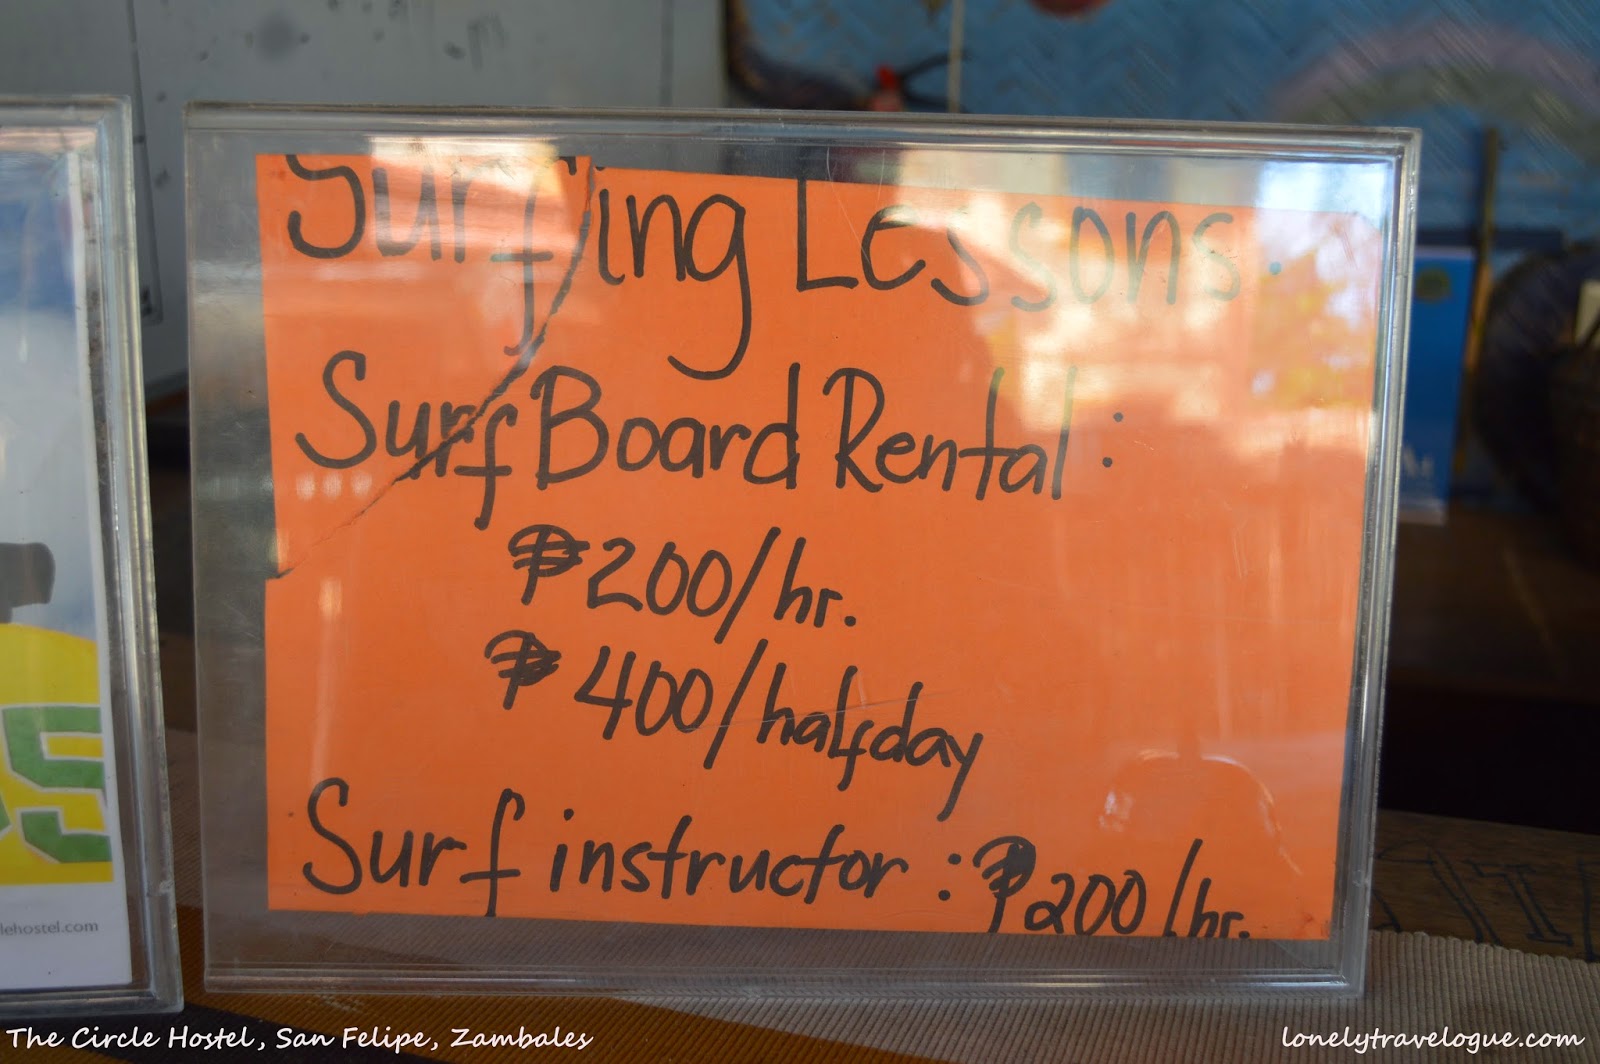 Surfing Lessons.
Surf Board Rental:
₱200/hr.
₱400/halfday
Surf instructor: ₱200/hr.
lehostel.com
The Circle Hostel, San Felipe, Zambales
lonelytravelogue.com